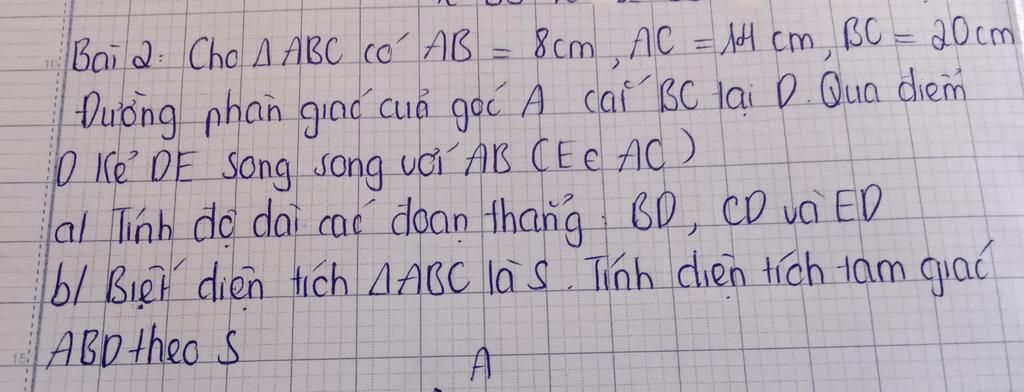 Bài 2: Cho Δ ABC có AB = 8cm, AC = 14 cm, BC = 20cm
Đường phân giác của góc A cắt BC tại D. Qua điểm
D kẻ DE song song với AB (E ∈ AC)
a/ Tính độ dài các đoạn thẳng: BD, CD và ED
b/ Biết diện tích ΔABC là S. Tính diện tích tam giác
ABD theo S
A